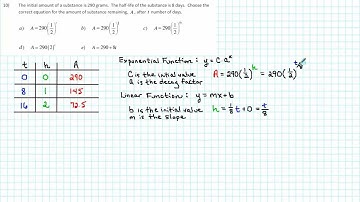 10) The initial amount of a substance is 290 grams. The half-life of the substance is 8 days. Choose the
correct equation for the amount of substance remaining, A, after t number of days.
a) A = 290(1/2)
b) A = 290(1/2)
c) A = 290(1/2)
d) A = 290(2)
e) A = 290 + 8t
t h A
0 0 290
8 1 145
16 2 72.5
Exponential Function: y = C·a^x
C is the initial value A = 290(1/2)^h = 290(1/2)^t/8
a is the decay factor
Linear Function: y = mx + b
b is the initial value h = 1/8 t + 0 = t/8
m is the slope